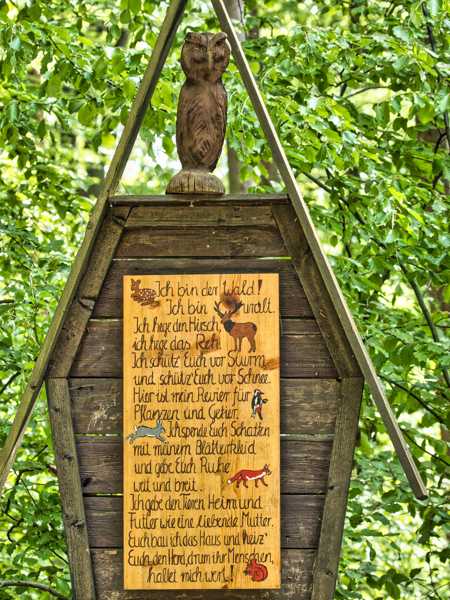 Ich bin der Wald!
Ich bin uralt.
Ich hege den Hirsch,
ich hege das Reh.
Ich schütz' Euch vor Sturm
und schütz' Euch vor Schnee.
Hier ist mein Revier für
Pflanzen und Getier.
Ich spende Euch Schatten
mit meinem Blätterkleid
und gebe Euch Ruhe
weit und breit.
Ich gebe den Tieren Heim und
Futter wie eine liebende Mutter.
Euch bau ich das Haus und heiz'
Euch den Herd, drum ihr Menschen,
haltet mich wert!